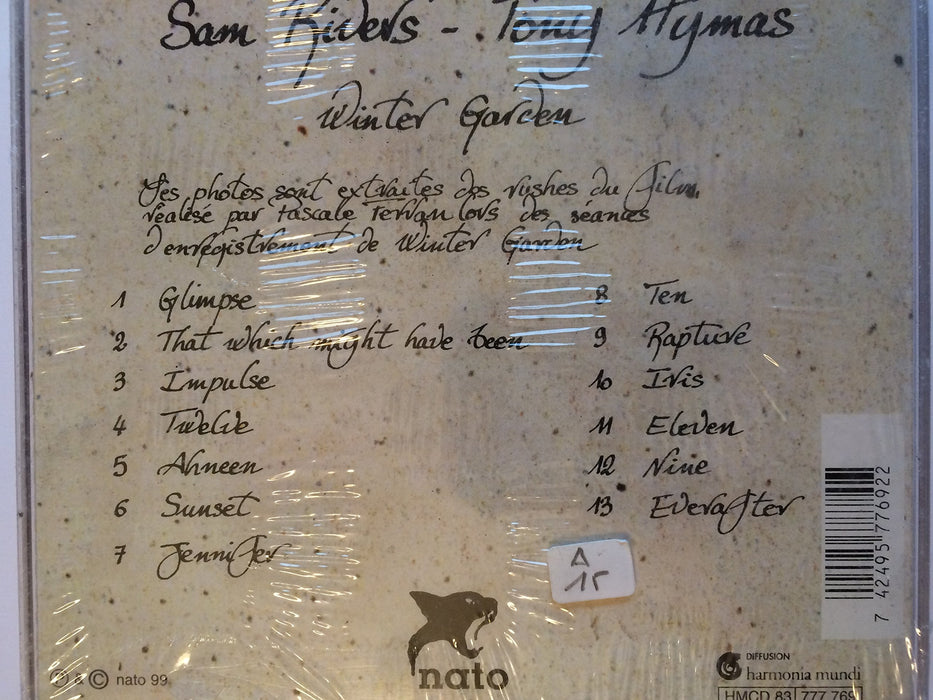 Sam Rivers - Tony Hymas
Winter Garden
Les photos sont extraites des rushes du film
réalisé par Pascale Ferran lors des séances
d'enregistrement de Winter Garden
1 Glimpse
2 That which might have been
3 Impulse
4 Twelve
5 Ahneen
6 Sunset
7 Jennifer
8 Ten
9 Rapture
10 Iris
11 Eleven
12 Nine
13 Everafter
A
15
7 42495 776922
nato
Ⓟ & © nato 99
DIFFUSION
harmonia mundi
HMCD 83 777 769